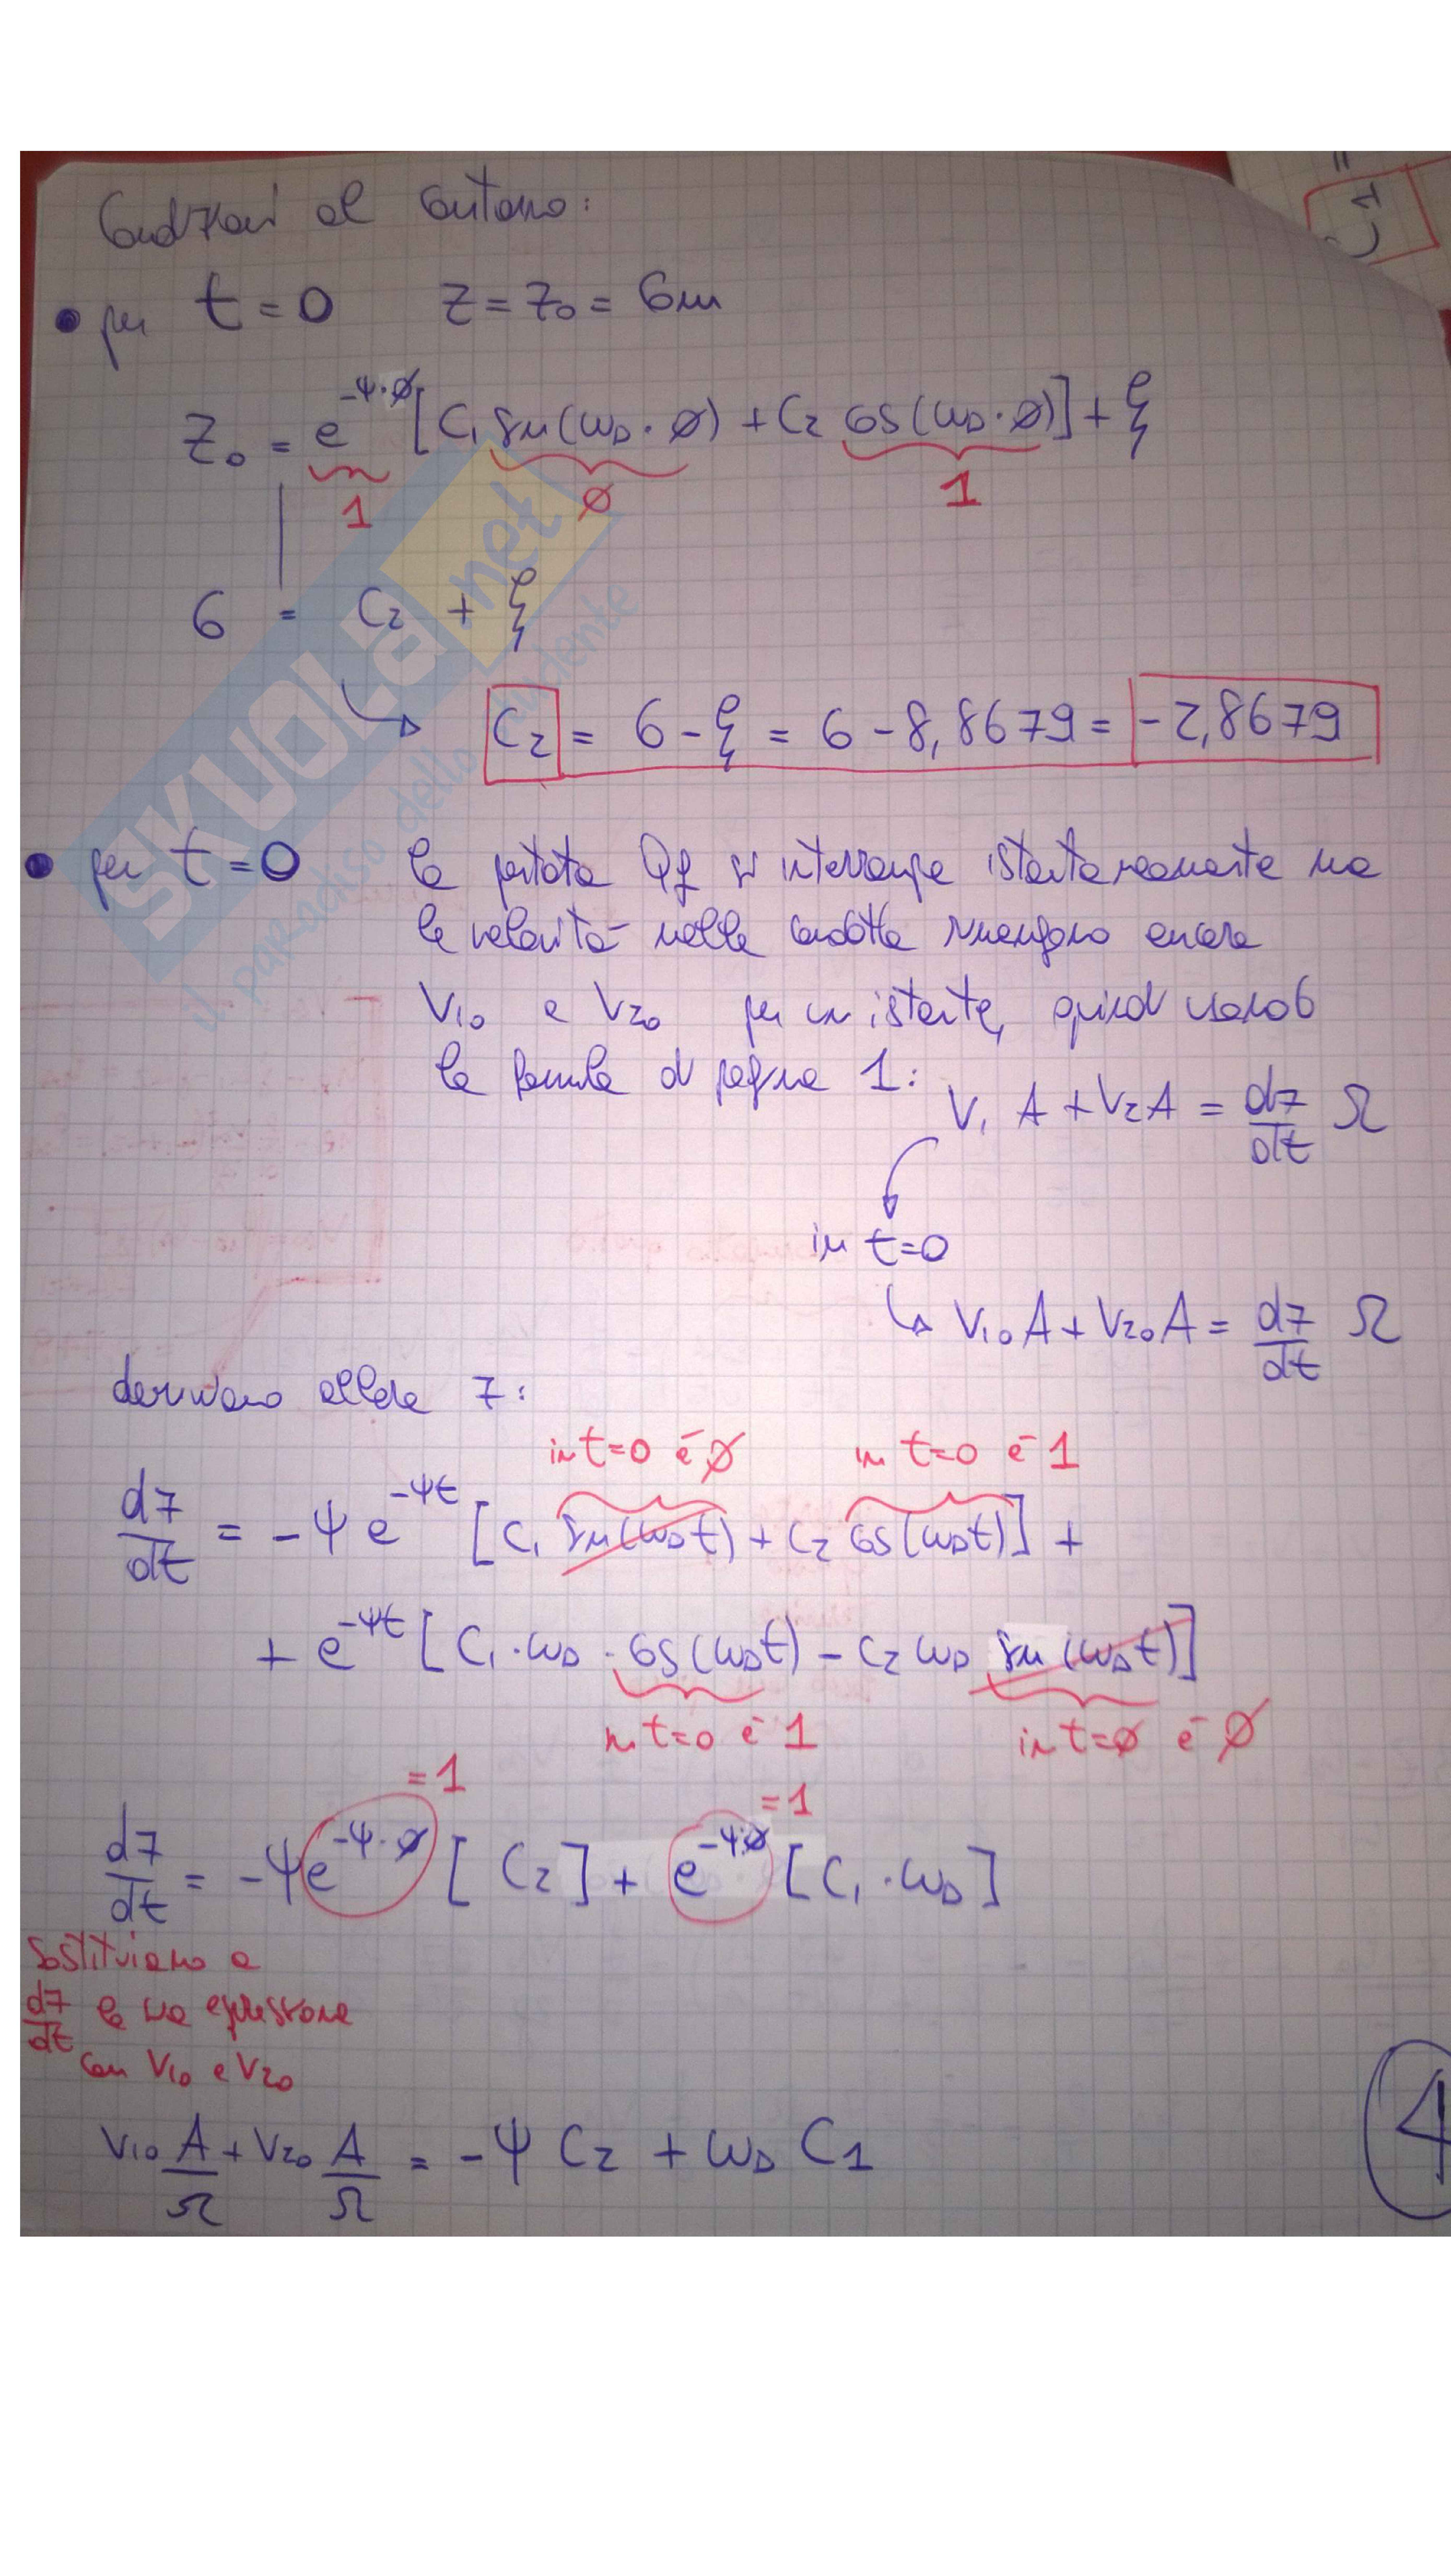 Condizioni al contorno:
• per t = 0 z = z₀ = 6m
z₀ = e^(-ψ·∅) [C₁ sen(ω_D · ∅) + C₂ cos(ω_D · ∅)] + ξ
1 ∅ 1
6 = C₂ + ξ
C₂ = 6 - ξ = 6 - 8,8679 = -2,8679
• per t = 0 la portata Qf si interrompe istantaneamente ma
le velocità nelle condotte rimangono ancora
V₁₀ e V₂₀ per un istante, quindi usando
la formula di pagina 1:
V₁ A + V₂ A = dz/dt Ω
in t=0
V₁₀ A + V₂₀ A = dz/dt Ω
deriviamo allora z:
in t=0 è ∅ in t=0 è 1
dz/dt = -ψ e^(-ψt) [C₁ sen(ω_D t) + C₂ cos(ω_D t)] +
+ e^(-ψt) [C₁ · ω_D · cos(ω_D t) - C₂ ω_D sen(ω_D t)]
in t=0 è 1 in t=∅ è ∅
=1 =1
dz/dt = -ψ e^(-ψ·∅) [C₂] + e^(-ψ·∅) [C₁ · ω_D]
Sostituiamo a
dz/dt la sua espressione
con V₁₀ e V₂₀
V₁₀ A/Ω + V₂₀ A/Ω = -ψ C₂ + ω_D C₁
4
SKUOLA.net
il paradiso dello studente